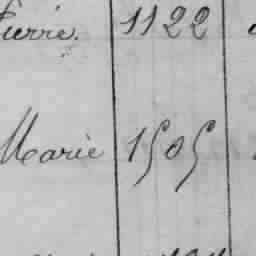 Pierre. 1122
Marie 1505